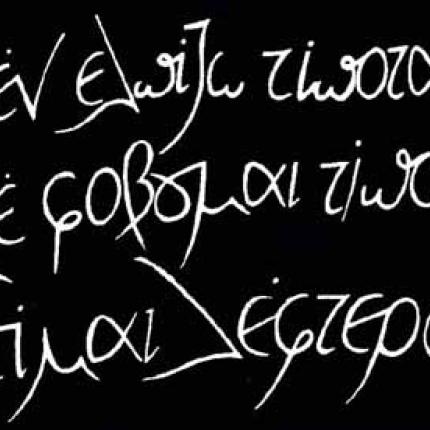 έν ελπίζω τίποτα
έ φοβουμαι τίπο
είμαι λέφτερο